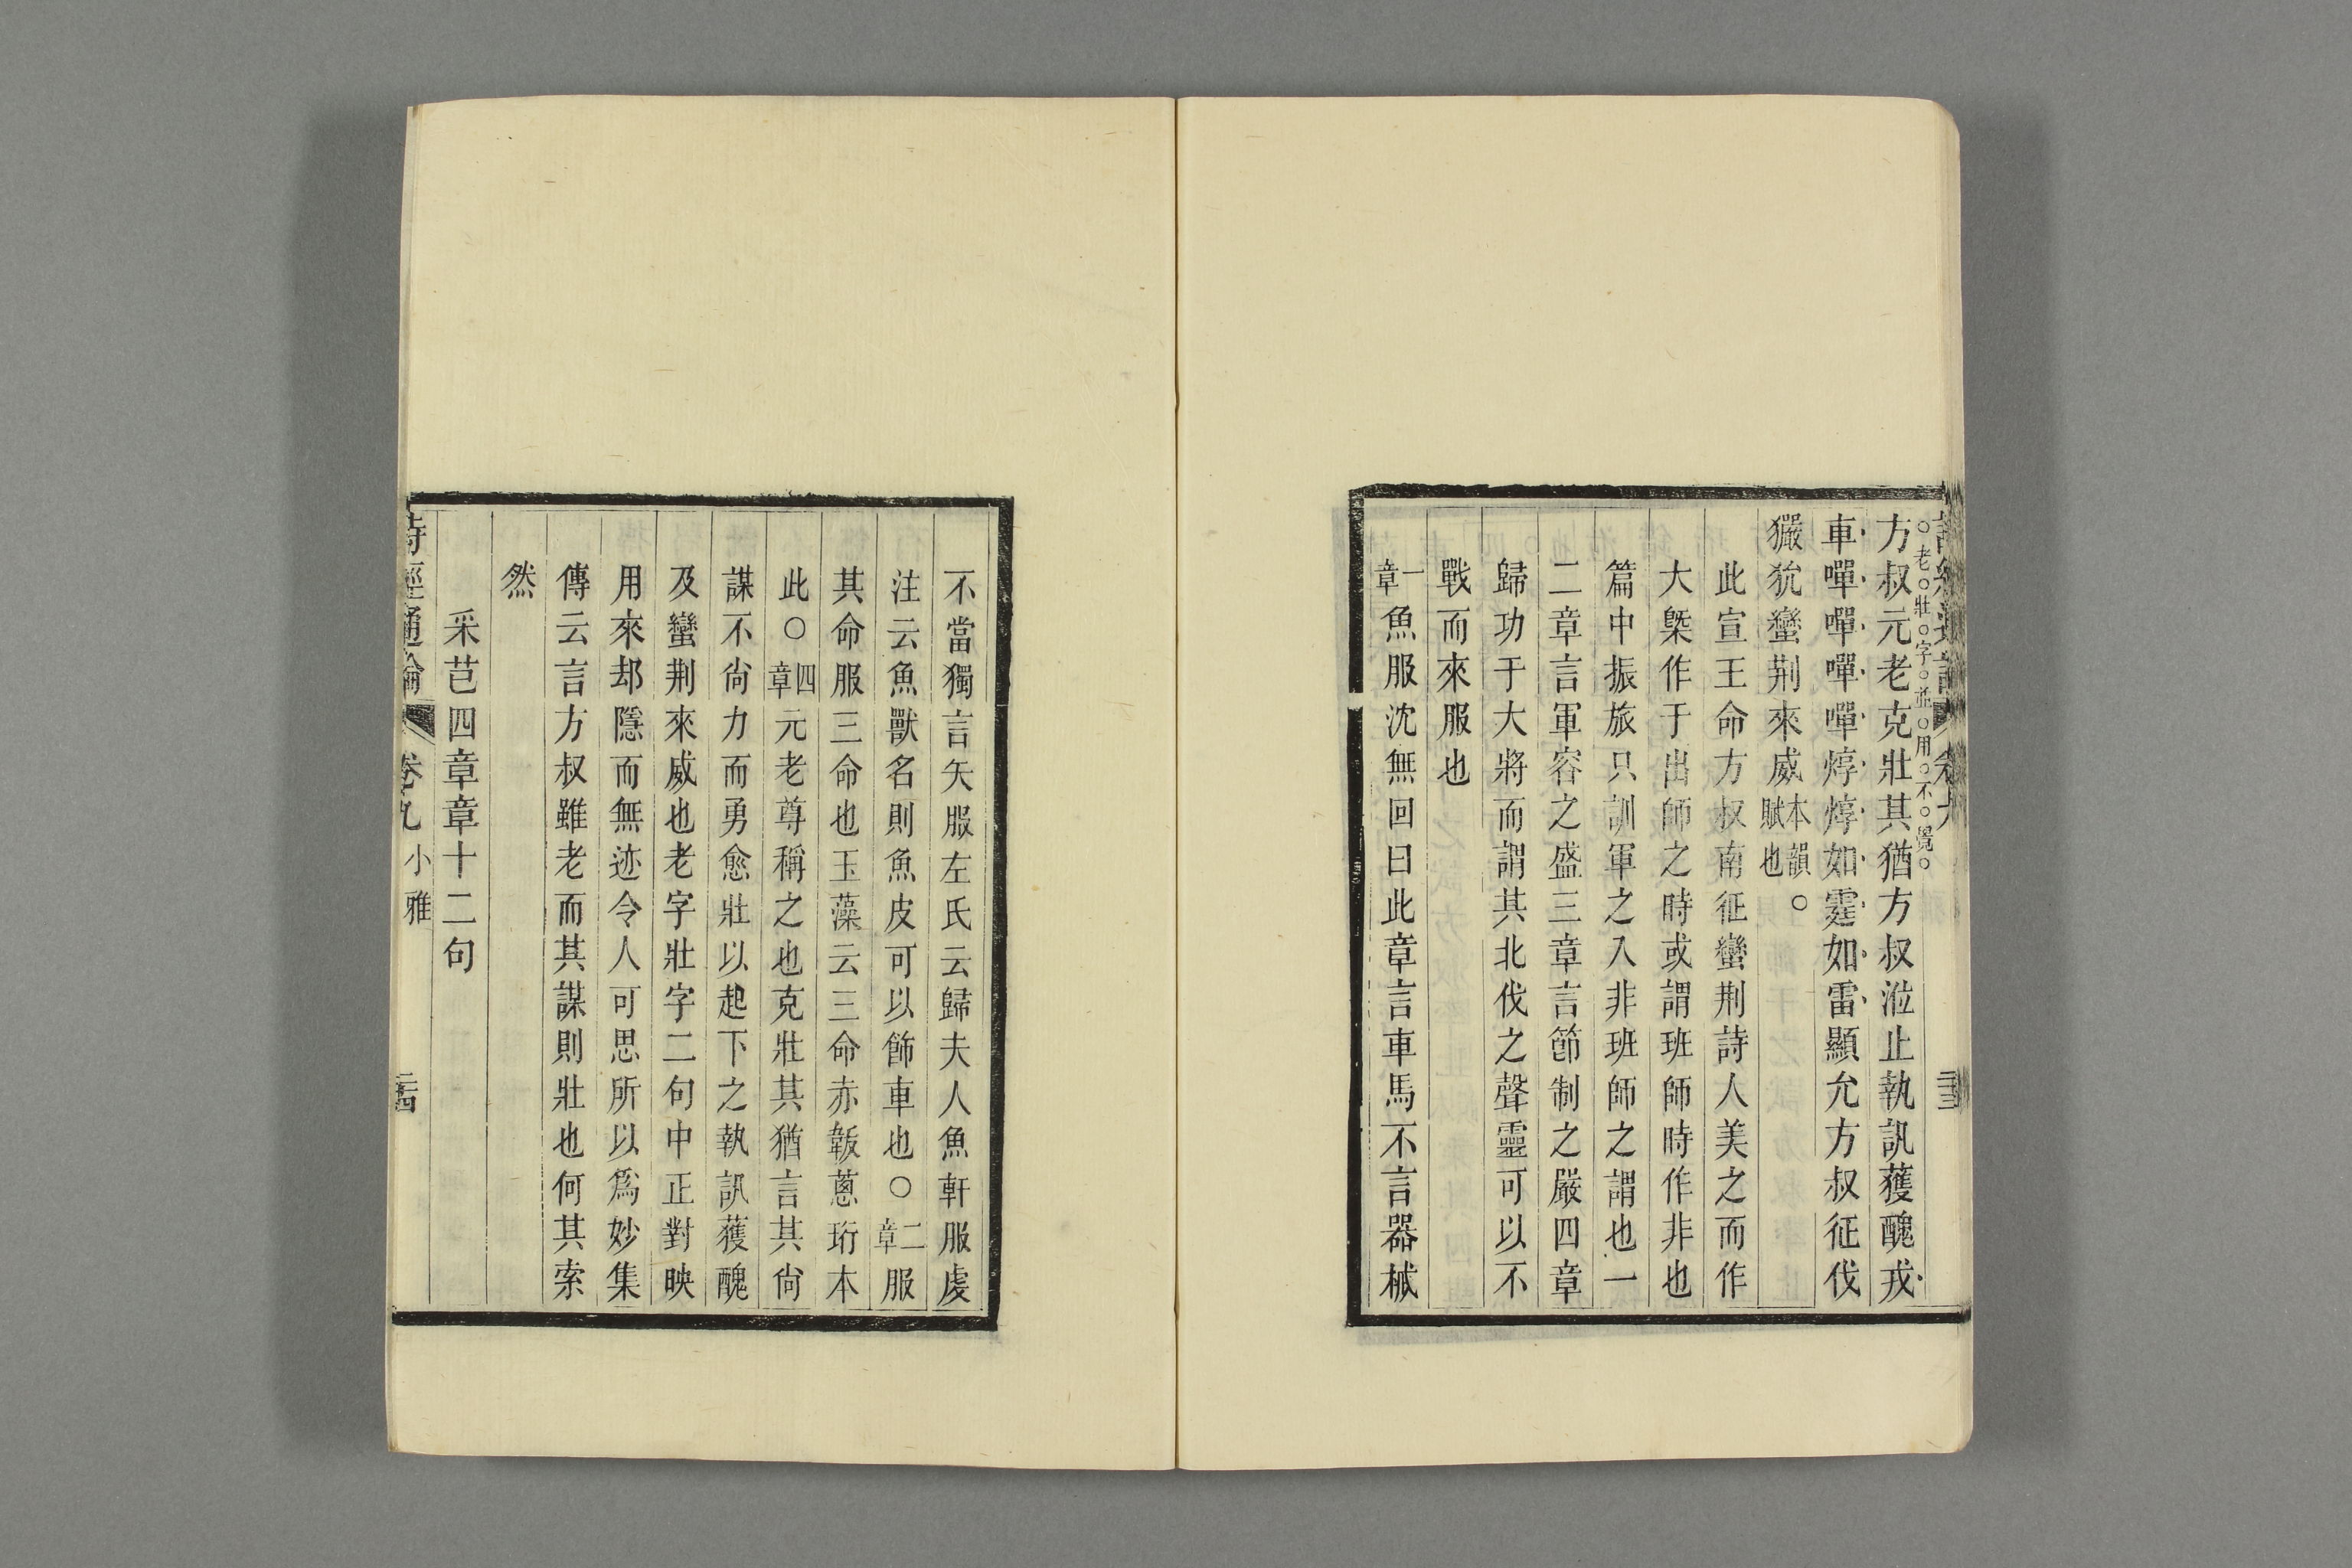 老壯字並用不覺
方叔元老克壯其猶方叔涖止執訊獲醜戎
車嘽嘽嘽嘽焞焞如霆如雷顯允方叔征伐
玁狁蠻荆來威本韻○賦也
此宣王命方叔南征蠻荆詩人美之而作
大槩作于出師之時或謂班師時作非也
篇中振旅只訓軍之入非班師之謂也一
二章言軍容之盛三章言節制之嚴四章
歸功于大將而謂其北伐之聲靈可以不
戰而來服也
一章魚服沈無回曰此章言車馬不言器械
不當獨言矢服左氏云歸夫人魚軒服虔
注云魚獸名則魚皮可以飾車也○二章服
其命服三命也玉藻云三命赤韍蔥珩本
此○四章元老尊稱之也克壯其猶言其尙
謀不尙力而勇愈壯以起下之執訊獲醜
及蠻荆來威也老字壯字二句中正對映
用來却隱而無迹令人可思所以爲妙集
傳云言方叔雖老而其謀則壯也何其索
然
采芑四章章十二句
詩經通論 卷九 小雅 二十四